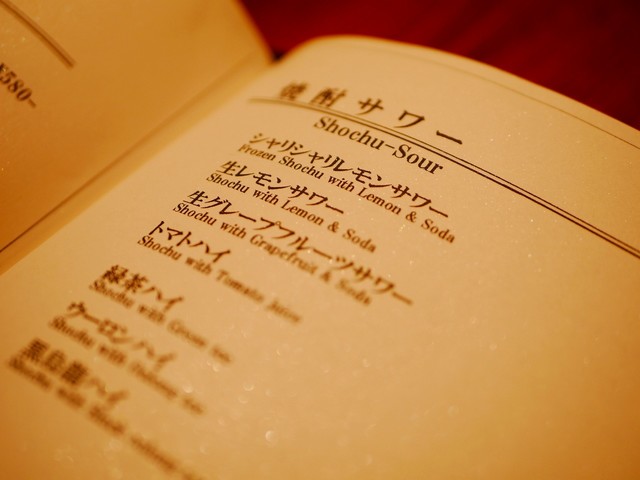 ¥580-
焼酎サワー
Shochu-Sour
シャリシャリレモンサワー
Frozen Shochu with Lemon & Soda
生レモンサワー
Shochu with Lemon & Soda
生グレープフルーツサワー
Shochu with Grapefruit & Soda
トマトハイ
Shochu with Tomato Juice
緑茶ハイ
Shochu with Green tea
ウーロンハイ
Shochu with Oolong tea
黒烏龍ハイ
Shochu with Black oolong tea